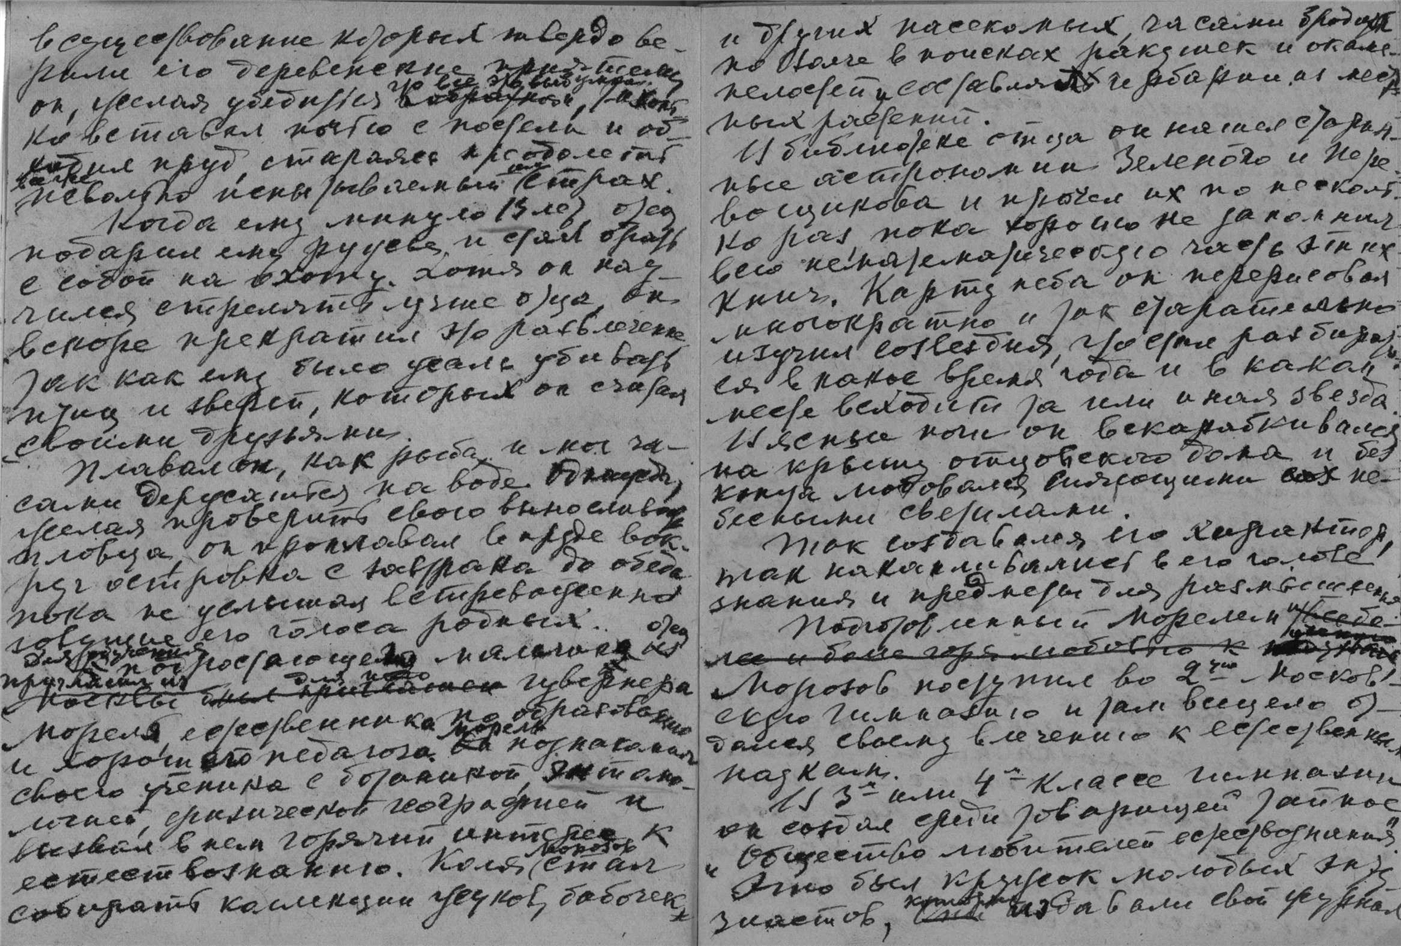 в существование которых твердо ве-
рили его деревенские приятели,
он, желая убедиться, что все это выдумки,
вставал ночью с постели и об-
ходил пруд, стараясь преодолеть
невольно испытываемый им страх.
Когда ему минуло 13 лет, отец
подарил ему ружье и стал брать
с собой на охоту. Хотя он нау-
чился стрелять лучше отца, он
вскоре прекратил это развлечение
так как ему было жаль убивать
птиц и зверей, которых он считал
своими друзьями.
Плавал он, как рыба и мог ча-
сами держаться на воде. Однажды,
желая проверить свою выносливость
пловца, он проплавал в пруде вок-
руг островка с завтрака до обеда
пока не услышал встревоженно
зовущие его голоса родных.
Для обучения подростающего мальчика отец
пригласил из
Москвы был приглашен для него гувернера
Мореля, естественника по образованию
и хорошего педагога. Морель познакомил
своего ученика с ботаникой, энтомо-
логией, физической географией и
вызвал в нем горячий интерес к
естествознанию. Коля Морозов стал
собирать коллекции жуков, бабочек
и других насекомых, часами бродил
по толще в поисках ракушек и окаме-
нелостей и составлял гербарии из мест-
ных растений.
В библиотеке отца он нашел старин-
ные астрономии Зеленого и Пере-
вощикова и прочел их по несколь-
ко раз, пока хорошо не запомнил
всю нематематическую часть этих
книг. Карту неба он перерисовал
многократно и так старательно
изучил созвездия, что стал разбирать-
ся в какое время года и в каком
месте всходит та или иная звезда.
В ясные ночи он вскарабкивался
на крышу отцовского дома и без
конца любовался сияющими не-
бесными светилами.
Так создавался его характер,
так накапливались в его голове
знания и предметы для размышления
Подготовленный Морелем и себе
лее и более горя любовью к
Морозов поступил во 2ую Москов-
скую гимназию и там всецело от-
дался своему влечению к естественным
наукам.
В 3м или 4м классе гимназии
он создал среди товарищей тайное
"Общество любителей естествознания".
Это был кружок молодых энту-
зиастов, которые издавали свой журнал